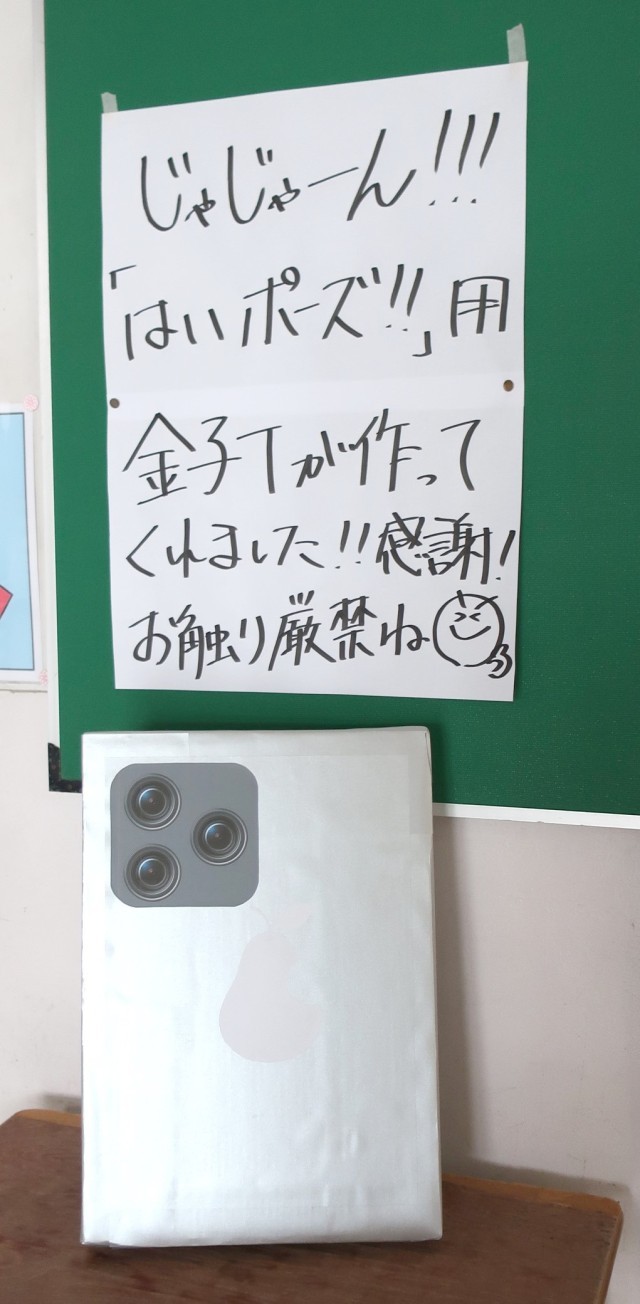 じゃじゃーん!!!
「はいポーズ!!」用
金子Tが作って
くれました!!感謝!
お触り厳禁ね